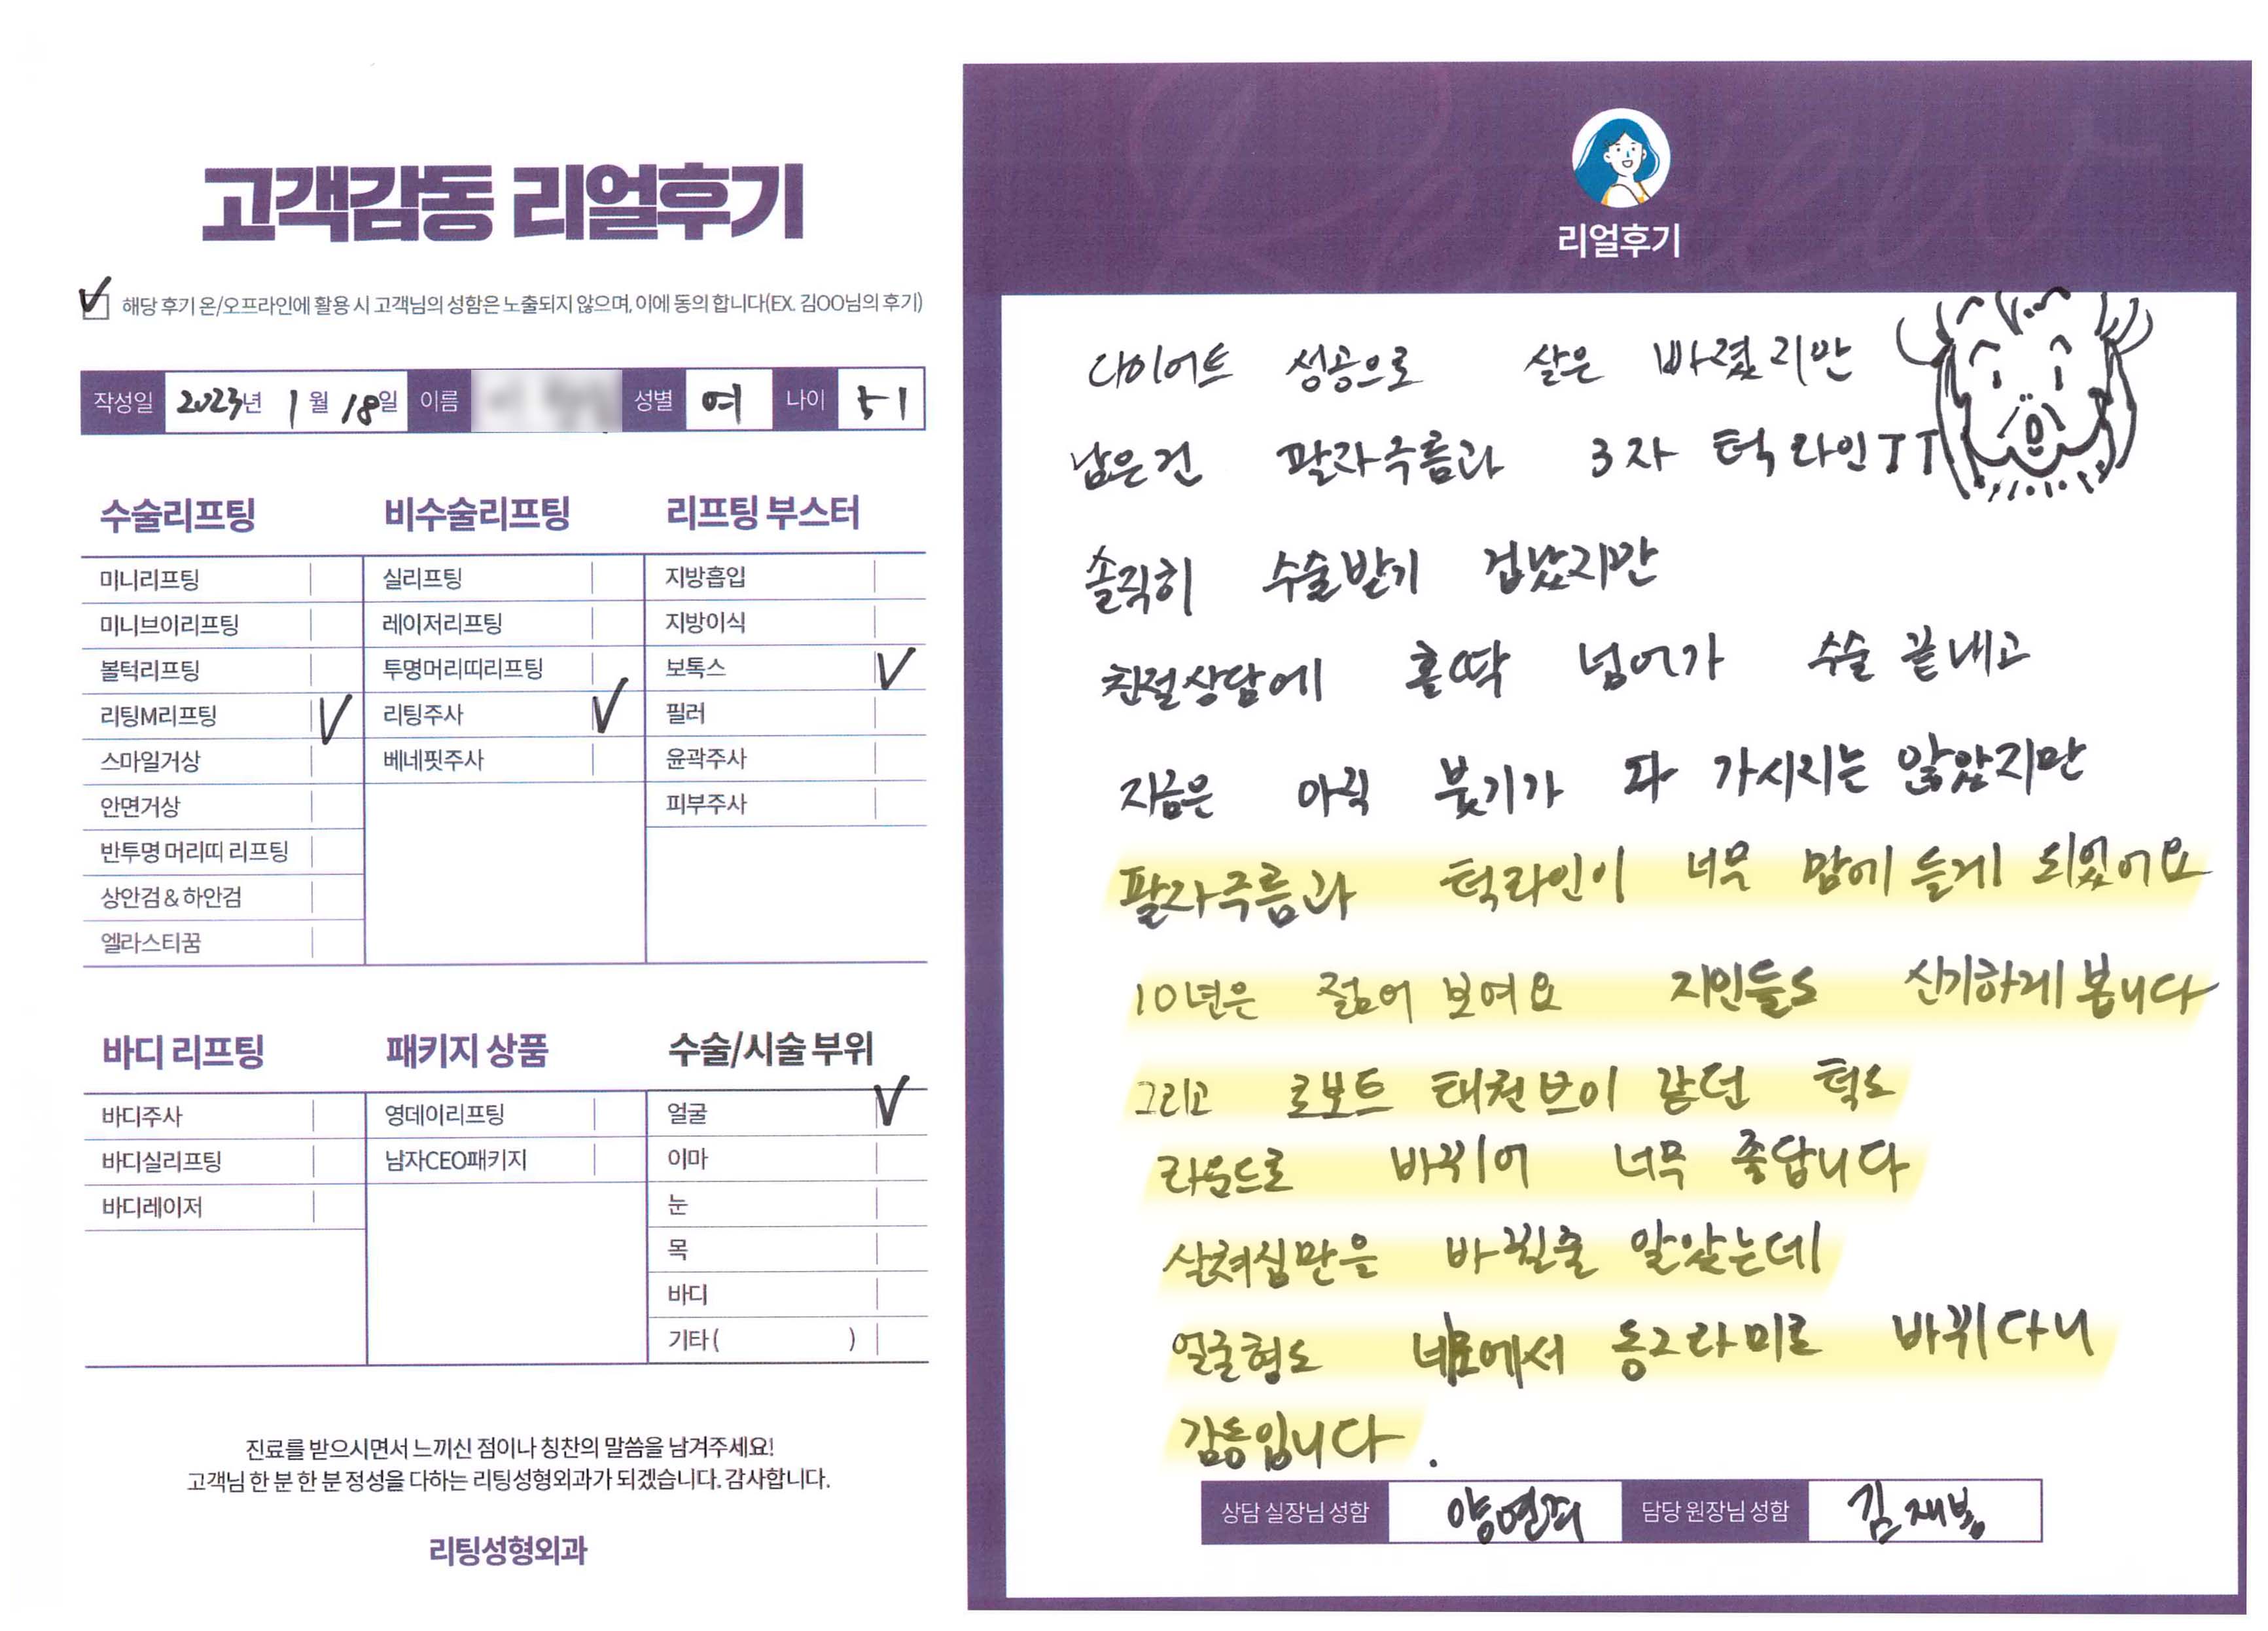 고객감동 리얼후기
해당 후기 온/오프라인에 활용 시 고객님의 성함은 노출되지 않으며, 이에 동의 합니다(EX. 김OO님의 후기)
작성일 2023년 1월 18일 이름 성별 여 나이 51
수술리프팅
미니리프팅
미니브이리프팅
볼턱리프팅
리팅M리프팅 V
스마일거상
안면거상
반투명 머리띠 리프팅
상안검 & 하안검
엘라스티꿈
비수술리프팅
실리프팅
레이저리프팅
투명머리띠리프팅
리팅주사 V
베네핏주사
리프팅 부스터
지방흡입
지방이식
보톡스 V
필러
윤곽주사
피부주사
바디 리프팅
바디주사
바디실리프팅
바디레이저
패키지 상품
영데이리프팅
남자CEO패키지
수술/시술 부위
얼굴 V
이마
눈
목
바디
기타 ( )
진료를 받으시면서 느끼신 점이나 칭찬의 말씀을 남겨주세요!
고객님 한 분 한 분 정성을 다하는 리팅성형외과가 되겠습니다. 감사합니다.
리팅성형외과
Review
리얼후기
다이어트 성공으로 살은 빠졌지만
남은건 팔자주름과 3자 턱라인 ㅜㅜ
솔직히 수술받기 겁났지만
친절상담에 홀딱 넘어가 수술 끝내고
지금은 아직 붓기가 다 가시지는 않았지만
팔자주름과 턱라인이 너무 맘에 들게 되었어요
10년은 젊어 보여요 지인들도 신기하게 봅니다
그리고 로보트 태권브이 같던 턱도
라운드로 바뀌어 너무 좋답니다
살쳐짐만은 바뀔줄 알았는데
얼굴형도 네모에서 동그라미로 바뀌다니
감동입니다.
상담 실장님 성함 담당 원장님 성함 김재봉